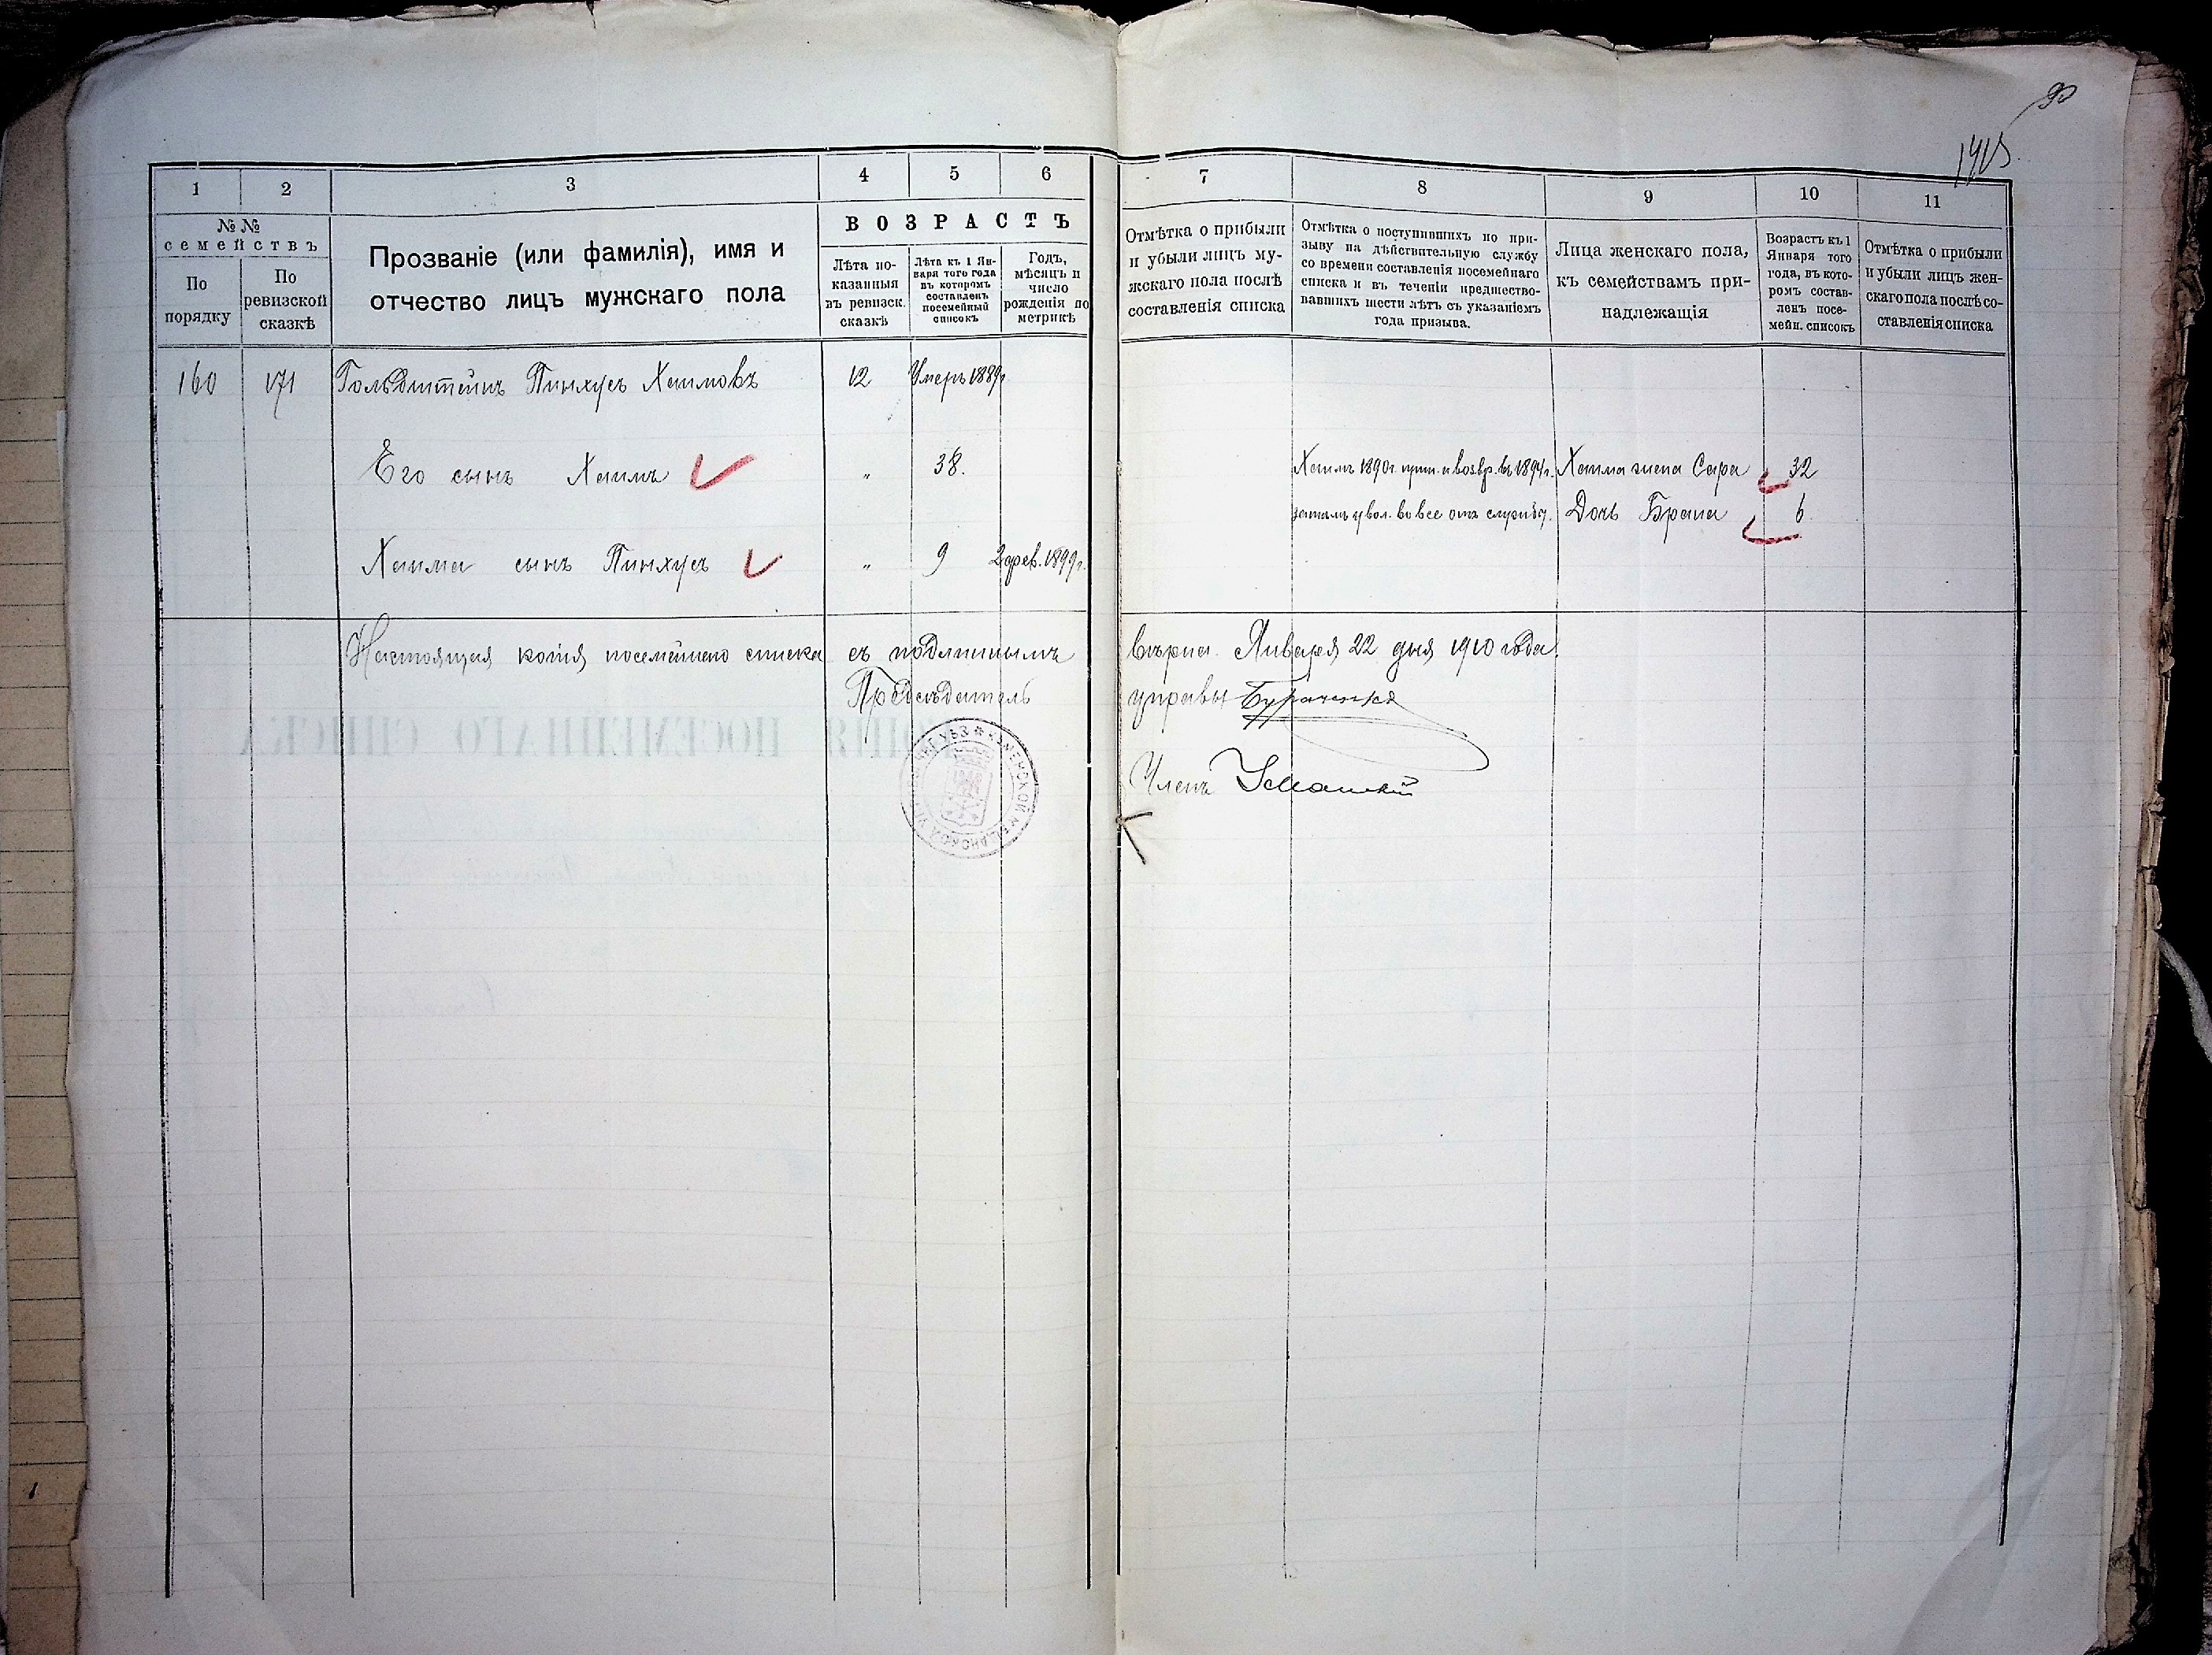 90
1 2 3 4 5 6 7 8 9 10 11
№№ семействъ
По порядку
По ревизской сказкѣ
Прозваніе (или фамилія), имя и
отчество лицъ мужскаго пола
ВОЗРАСТЪ
Лѣта по-
казанныя
въ ревизск.
сказкѣ
Лѣта къ 1 Ян-
варя того года
въ которомъ
составленъ
посемейный
списокъ
Годъ,
мѣсяцъ и
число
рожденія по
метрикѣ
Отмѣтка о прибыли
и убыли лицъ му-
жскаго пола послѣ
составленія списка
Отмѣтка о поступившихъ по при-
зыву на дѣйствительную службу
со времени составленія посемейнаго
списка и въ теченіи предшество-
вавшихъ шести лѣтъ съ указаніемъ
года призыва.
Лица женскаго пола,
къ семействамъ при-
надлежащія
Возрастъ къ 1
Января того
года, въ кото-
ромъ состав-
ленъ посе-
мейн. списокъ
Отмѣтка о прибыли
и убыли лицъ жен-
скаго пола послѣ со-
ставленія списка
160 171 Гольдштейнъ Пинхусъ Хаимовъ 12 Умеръ 1889г.
Его сынъ Хаимъ " 38. Хаимъ 1890г. прин. и возвр. въ 1894г. Хаима жена Сара 32
затѣмъ увол. вовсе отъ службы. Дочь Брана 6.
Хаима сынъ Пинхусъ " 9 2 фев. 1899г.
Настоящая копія посемейнаго списка съ подлиннымъ вѣрна. Января 22 дня 1910 года.
Предсѣдатель управы
Членъ
КАМЕНСКОЙ МѢЩАНСКОЙ